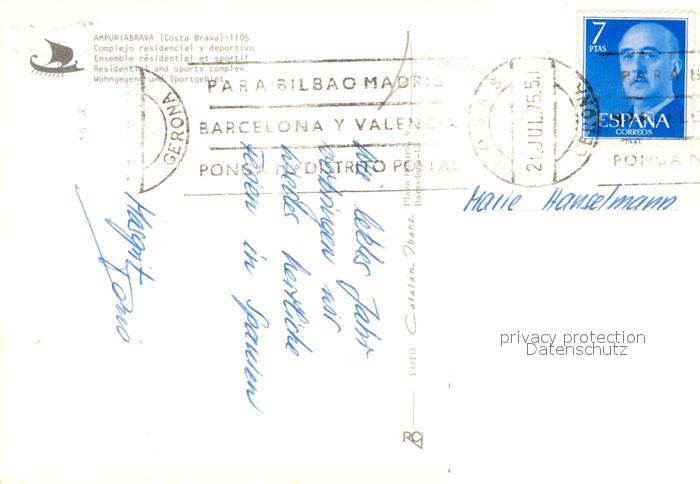 AMPURIABRAVA (Costa Brava)-1105
Complejo residencial y deportivo
Ensemble résidentiel et sportif
Residential and sports complex
Wohngegend und Sportgebiet
GERONA
PARA BILBAO MADRID
BARCELONA Y VALENCIA
PONGA Nº DISTRITO POSTAL
ROSAS
21.JUL.75.5.T
GERONA
7
PTAS
ESPAÑA
CORREOS
PARA B
PONGA N
Wie letztes Jahr
verbringen wir
wieder herrliche
Ferien in Spanien
Margrit
Marie Hanselmann
FOTO Catalan Ibarz
RO
privacy protection
Datenschutz